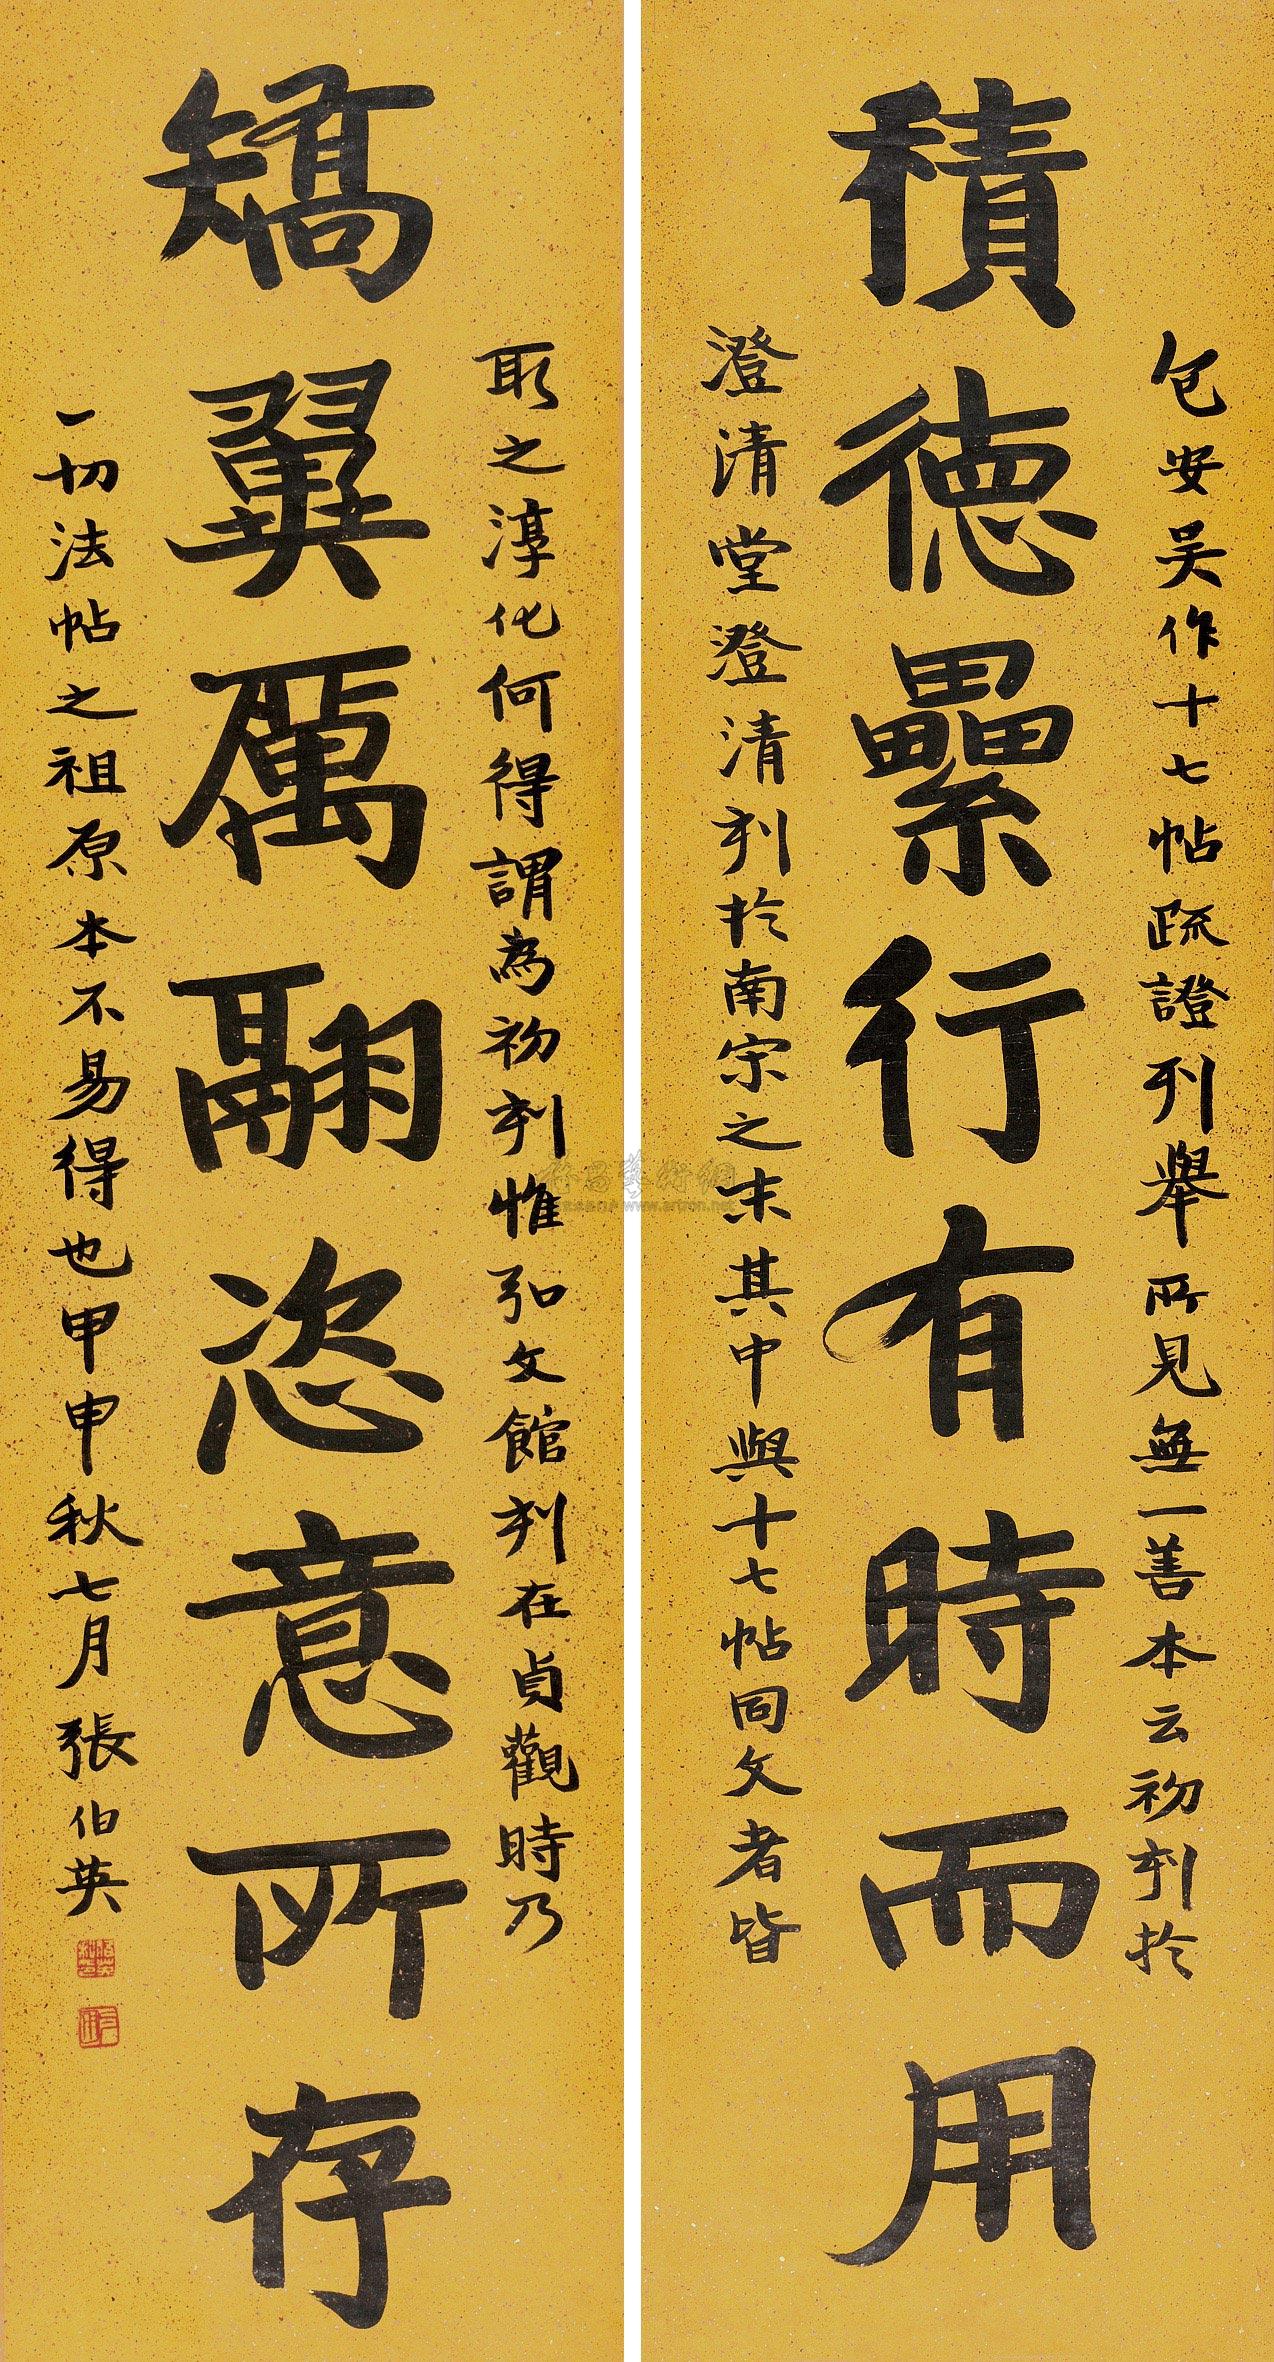 包安吳作十七帖疏證列舉所見無一善本云初刻於
積德纍行有時而用
澄清堂澄清刻於南宋之末其中與十七帖同文者皆
取之淳化何得謂為初刻惟弘文館刻在貞觀時乃
矯翼厲翮恣意所存
一切法帖之祖原本不易得也甲申秋七月張伯英
www.artron.net